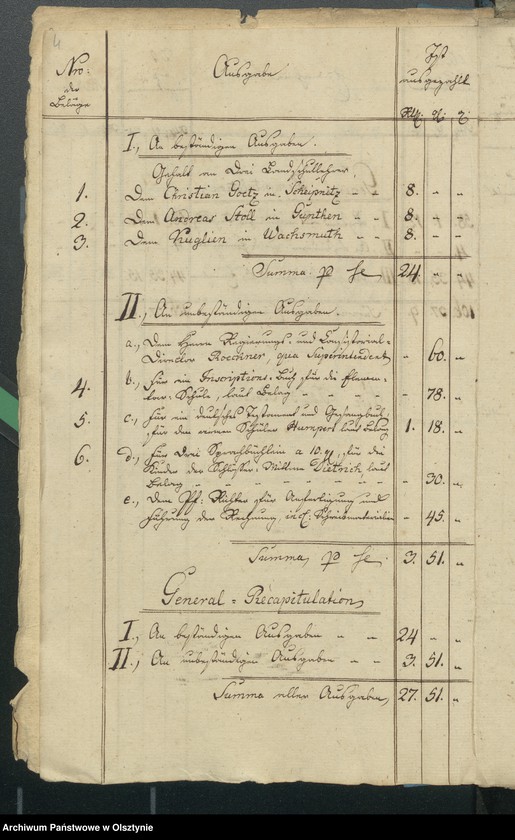 4
Nro: der Beläge
Ausgabe
Ist ausgezahlt
Rtl. gl. ₰
I., An beständigen Ausgaben.
Gehalt an drei Landschullehrer,
1. Dem Christian Goetz in Scheipnitz " " 8. " "
2. Dem Andreas Stoll in Günthen " " 8. " "
3. Dem Kuglien in Wachsmuth " " 8. " "
Summa p se 24. " "
II., An unbeständigen Ausgaben.
a., Dem Herrn Regierungs- und Consistorial-
Director Roechner, qua Superintendent " 60. "
4. b., Für ein Inscriptions-Buch für die Elemen-
tar-Schule, laut Belag " " " " 78. "
5. c., Für ein deutsches Testament und Gesangbuch,
für den armen Schüler laut Belag 1. 18. "
6. d., Für drei Sprachbüchlein a 10 gl, für die
Kinder der Schlosser-Wittwe Dietrich, laut
Belag " " " " " " " 30. "
e., Dem Pf: Richter für Anfertigung und
Führung der Rechnung, incl: Schreibmaterialien " 45. "
Summa, p se. 3. 51. "
General-Recapitulation,
I., An beständigen Ausgaben " " 24 " "
II., An unbeständigen Ausgaben " " 3. 51. "
Summa aller Ausgaben, 27. 51. "
Archiwum Państwowe w Olsztynie